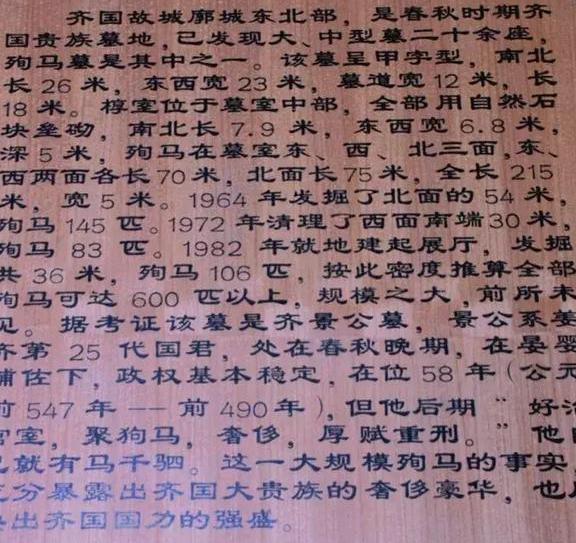 齐国故城廓城东北部，是春秋时期齐
国贵族墓地，已发现大、中型墓二十余座，
殉马墓是其中之一。该墓呈甲字型，南北
长 26 米，东西宽 23 米，墓道宽 12 米，长
18 米。椁室位于墓室中部，全部用自然石
块垒砌，南北长 7.9 米，东西宽 6.8 米，
深 5 米，殉马在墓室东、西、北三面，东、
西两面各长 70 米，北面长 75 米，全长 215
米，宽 5 米。1964 年发掘了北面的 54 米，
殉马 145 匹。1972 年清理了西面南端 30 米，
殉马 83 匹。1982 年就地建起展厅，发掘
共 36 米，殉马 106 匹，按此密度推算全部
殉马可达 600 匹以上，规模之大，前所未
见。据考证该墓是齐景公墓，景公系姜
齐第 25 代国君，处在春秋晚期，在晏婴
辅佐下，政权基本稳定，在位 58 年（公元
前 547 年 —— 前 490 年），但他后期“好治
宫室，聚狗马，奢侈，厚赋重刑。”他
就有马千驷。这一大规模殉马的事实
充分暴露出齐国大贵族的奢侈豪华，也
出齐国国力的强盛。